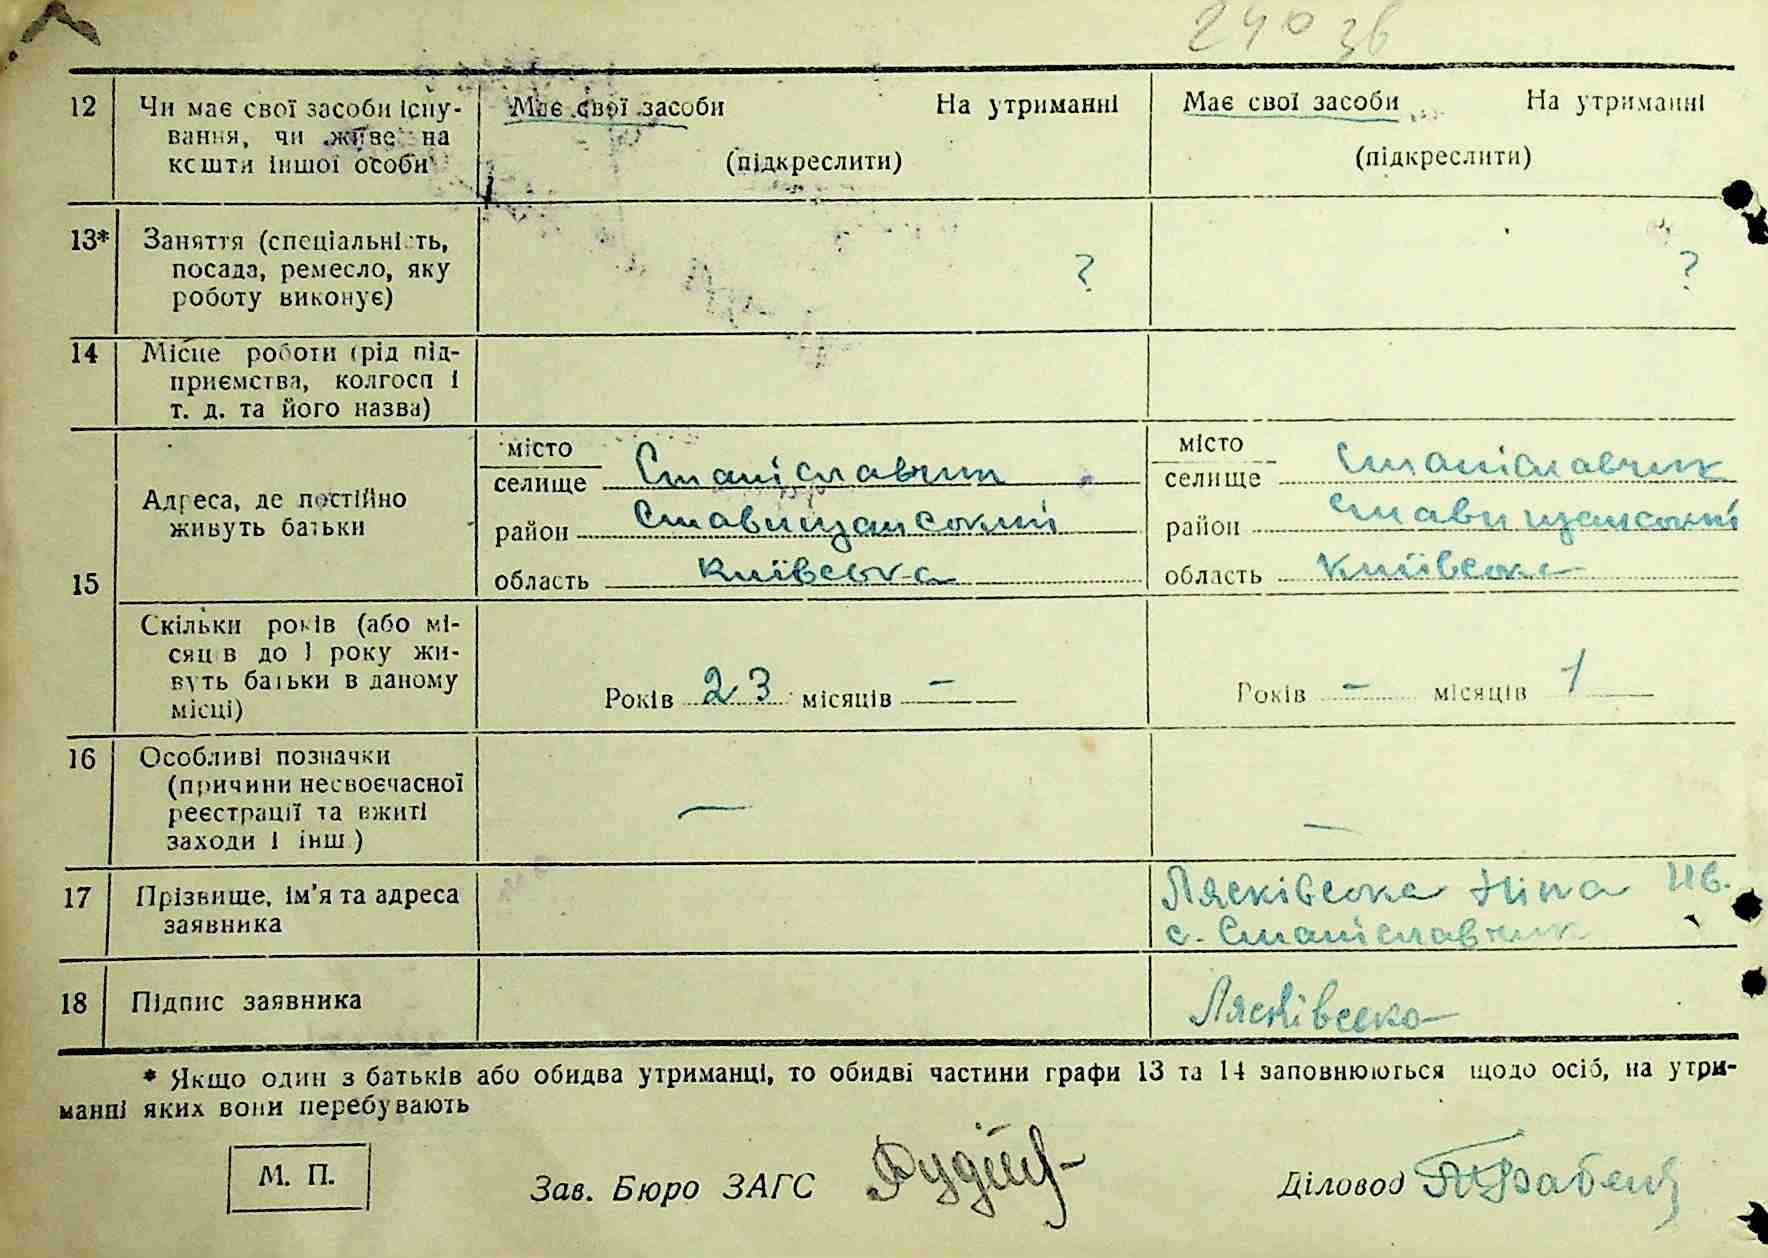 240 зв
12 Чи має свої засоби існу- Має свої засоби На утриманні Має свої засоби На утриманні
вання, чи живе на
кошти іншої особи (підкреслити) (підкреслити)
13* Заняття (спеціальність,
посада, ремесло, яку ? ?
роботу виконує)
14 Місце роботи (рід під-
приємства, колгосп і
т. д. та його назва)
15 Адреса, де постійно
живуть батьки
місто
селище Станіславчик
район Ставищанський
область Київська
місто
селище Станіславчик
район Ставищанський
область Київська
Скільки років (або мі-
сяців до 1 року жи-
вуть батьки в даному
місці)
Років 23 місяців – Років – місяців 1
16 Особливі позначки
(причини несвоєчасної
реєстрації та вжиті
заходи і інш.) – –
17 Прізвище, ім'я та адреса Лясківська Ніна Ив.
заявника с. Станіславчик
18 Підпис заявника Лясківска
* Якщо один з батьків або обидва утриманці, то обидві частини графи 13 та 14 заповнюються щодо осіб, на утри-
манні яких вони перебувають
М. П. Зав. Бюро ЗАГС Діловод